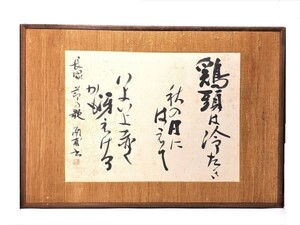 鶏頭は冷たき
秋の日に
はえて
いよいよ赤く
冴えにける
かも
長塚 節の歌 書